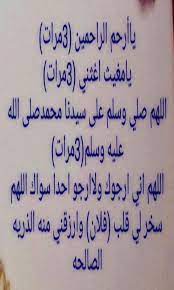 ياأرحم الراحمين (3مرات)
يامغيث أغثني (3مرات)
اللهم صلي وسلم على سيدنا محمدصلى الله
عليه وسلم(3مرات)
اللهم اني ارجوك ولاارجو احدا سواك اللهم
سخر لي قلب (فلان) وارزقني منه الذريه
الصالحه